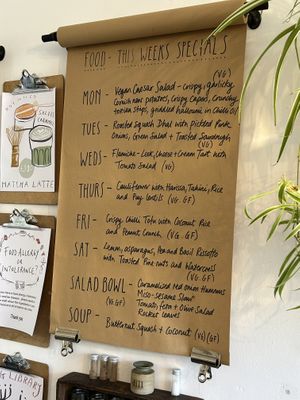 FOOD - THIS WEEKS SPECIALS
(VG)
MON - Vegan Caesar Salad - crispy, garlicky
Cornish new potatoes, Crispy Capers, Crunchy
tortilla strips, griddled halloumi in chilli oil
TUES - Roasted Squash Dhal with Pickled Pink
Onions, Green Salad + Toasted Sourdough
(VG)
WEDS - Flamiche - Leek, Cheese + Cream Tart with
Tomato Salad (VG)
THURS - Cauliflower with Harissa, Tahini, Rice
and Puy Lentils (VG. GF)
FRI - Crispy Chilli Tofu with Coconut Rice
and Peanut Crunch (VG. GF)
SAT - Lemon, asparagus, Pea and Basil Risotto
with Toasted Pine nuts and Watercress
(VG. GF)
SALAD BOWL - Caramelised Red onion Hummus
(VG. GF) Miso-sesame Slaw
Tomato, Fenn + Olive Salad
Rocket leaves
SOUP - Butternut Squash + Coconut (VG)(GF)
SALTED
CARAMEL
MATCHA LATTE
FOOD ALLERGY
OR
INTOLERANCE?
Thank you
LIBRARY